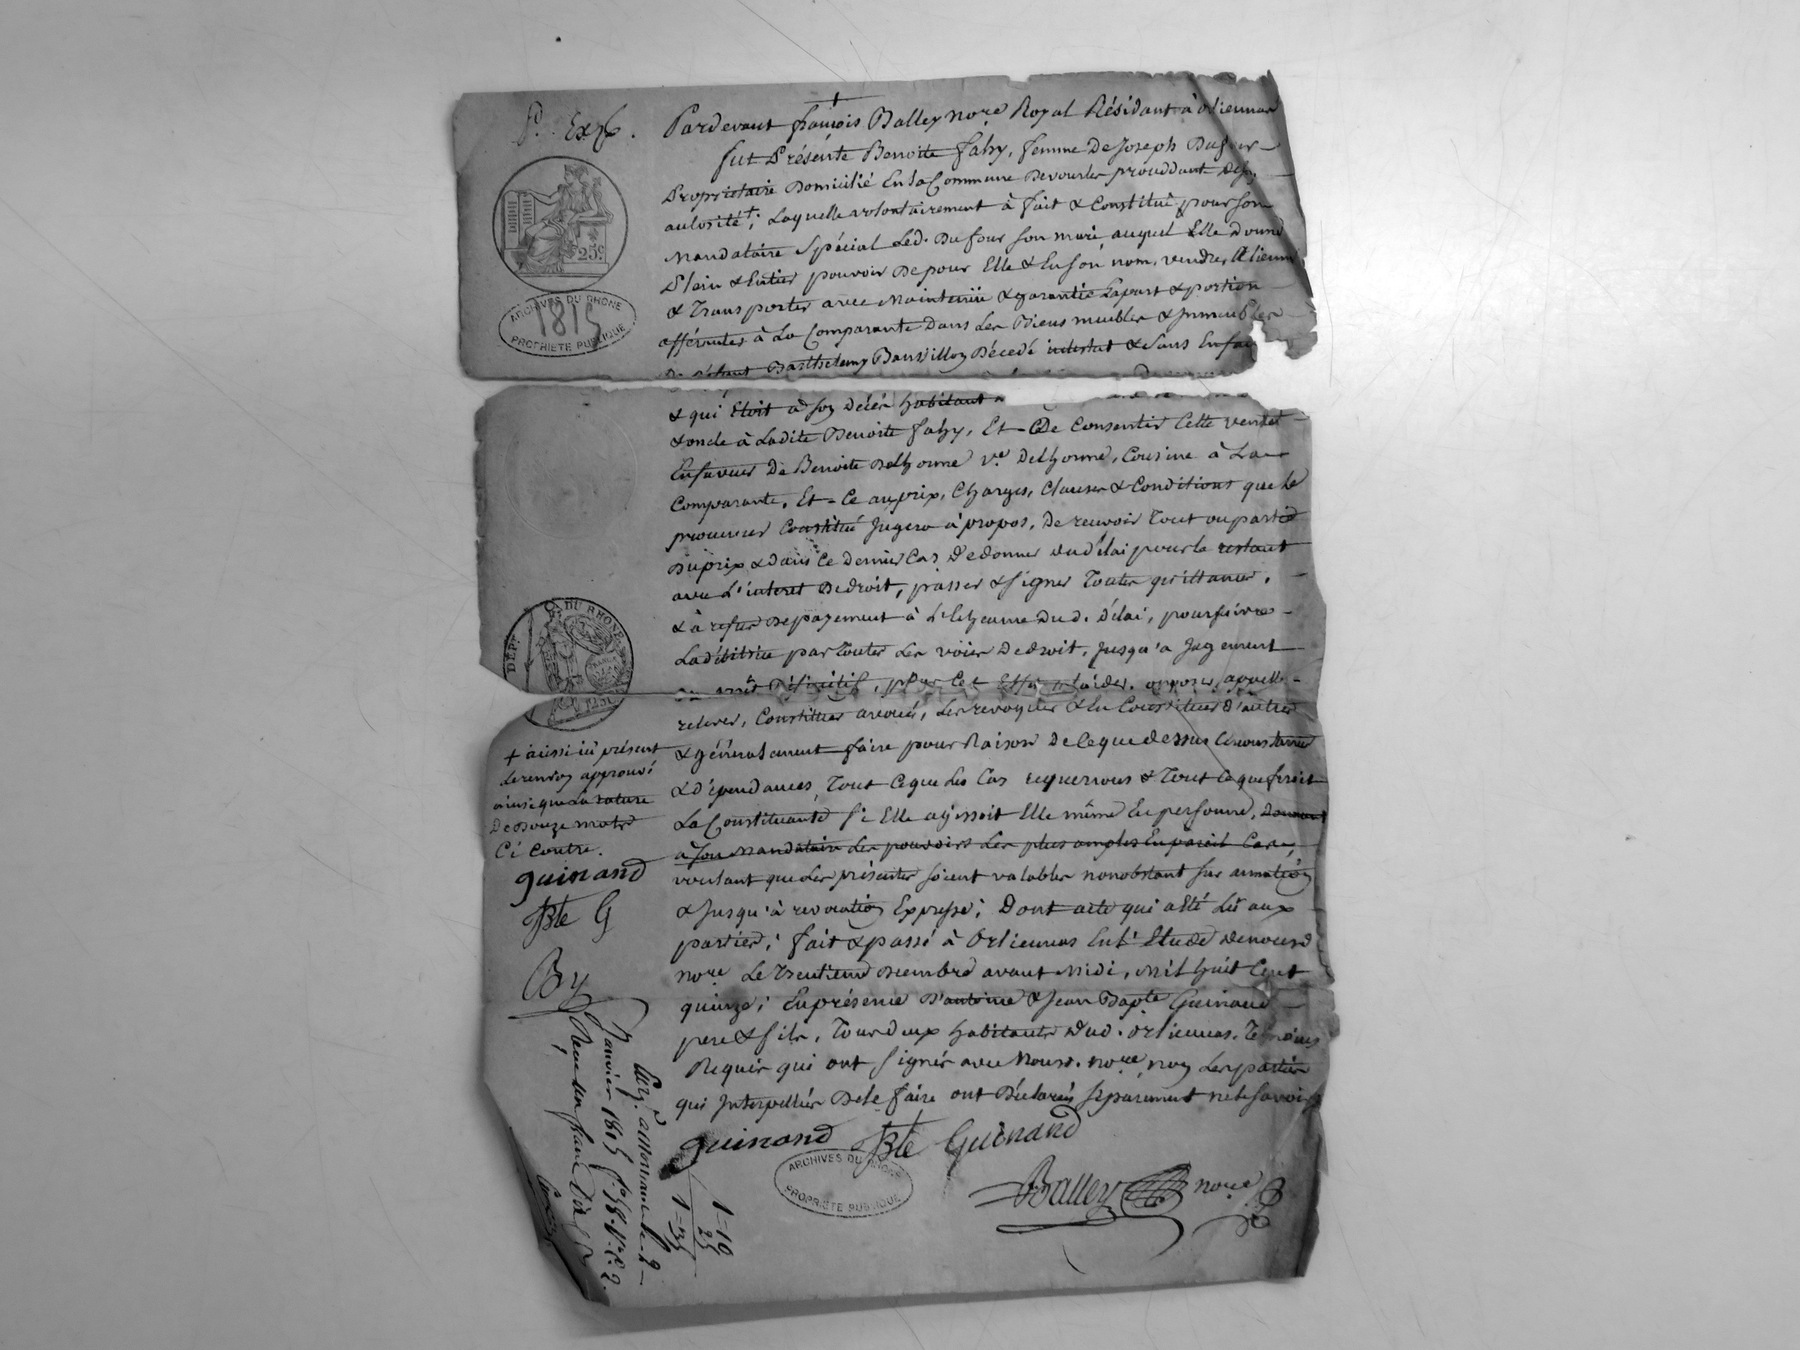 Pd. Exp.
Pardevant françois Balley nore Royal Résidant à orliennas
fut Présente Benoite fahy, femme De Joseph Dufour
Propriétaire Domicilié En la Commune Devourles procédant de son
autorité +; Laquelle volontairement à fait & Constitué pour son
Mandataire Spécial Led. Dufour son mari, auquel Elle donne
Plein & Entier pouvoir De pour Elle & En son nom, vendre, Aliener
& Transporter avec Maintenüe & garantie La part & portion
afférentes à La Comparante Dans Les Biens meubles & Immeubles
De défunt Barthelemy Banvilloy Décedé intestat & Sans Enfans
25c
ARCHIVES DU RHONE
1815
PROPRIÉTÉ PUBLIQUE
& qui Etoit à soy Décès habitant a
& oncle à Ladite Benoite fahy, Et - Ce De Consentir Cette vente
En faveur De Benoite Delhorme ve. Delhorme, Cousine à La
Comparante, Et - Ce au prix, Charges, Clauses & Conditions que le
procureur Constitué Jugera à propos, De recevoir Tout ou partie
Du prix & dans Ce dernier Cas De donner Du Délai pour le restant
avec L'interet De droit, passer & signer Toutes quittances,
& à refus De payement à L'Echeance Du d. Délai, poursuivre
La débitrice par Toutes Les voies De droit, Jusqu'a Jugement
ou arrêt Définitif, pour Cet Effet plaider, opposer, appeller
relever, Constituer avoués, Les revoquer & En Constituer D'autres
DEPt. DU RHONE
& généralement faire pour Raison De Ce que dessus Circonstances
& Dépendances, Tout Ce que Les Cas requerrons & Tout Ce que feroit
La Constituante Si Elle agissoit Elle même En personne, donnant
à son Mandataire Les pouvoirs Les plus amples En pareil Cas,
voulant que Les présentes soient valables nonobstant sur annation
& Jusqu'à revocation Expresse; Dont acte qui a Eté Lû aux
parties; fait & passé à Orliennas En L'Etude De nous d.
nore Le Trentieme Decembre avant Midi, Mil huit Cent
quinze; En présence D'antoine & Jean Bapte Guinand
pere & fils, Tous deux habitants Dud. Orliennas, Témoins
Requis qui ont signés avec Nousd. nore, noy Les parties
qui Interpellées De le faire ont Déclarés Séparement ne le savoir
+ aussi ici présent
Le renvoy approuvé
ainsi que La rature
De Douze mots
Ci Contre.
guinand
Bte G
By
guinand Bte Guinand
Balley nore
ARCHIVES DU RHONE
PROPRIÉTÉ PUBLIQUE
1 = 10
25
1 = 35
Janvier 1815 fo 58. Vo. C. 2.